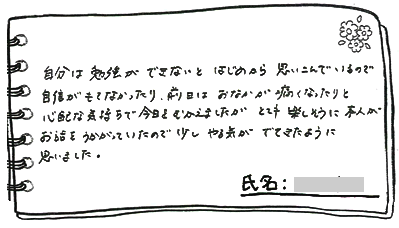 自分は勉強ができないと はじめから 思いこんでいるので
自信がもてなかったり、前日は おなかが 痛くなったりと
心配な気持ちで今日をむかえましたが とても 楽しそうに 本人が
お話をうかがっていたので 少し やる気が でてきたように
思いました。
氏名：